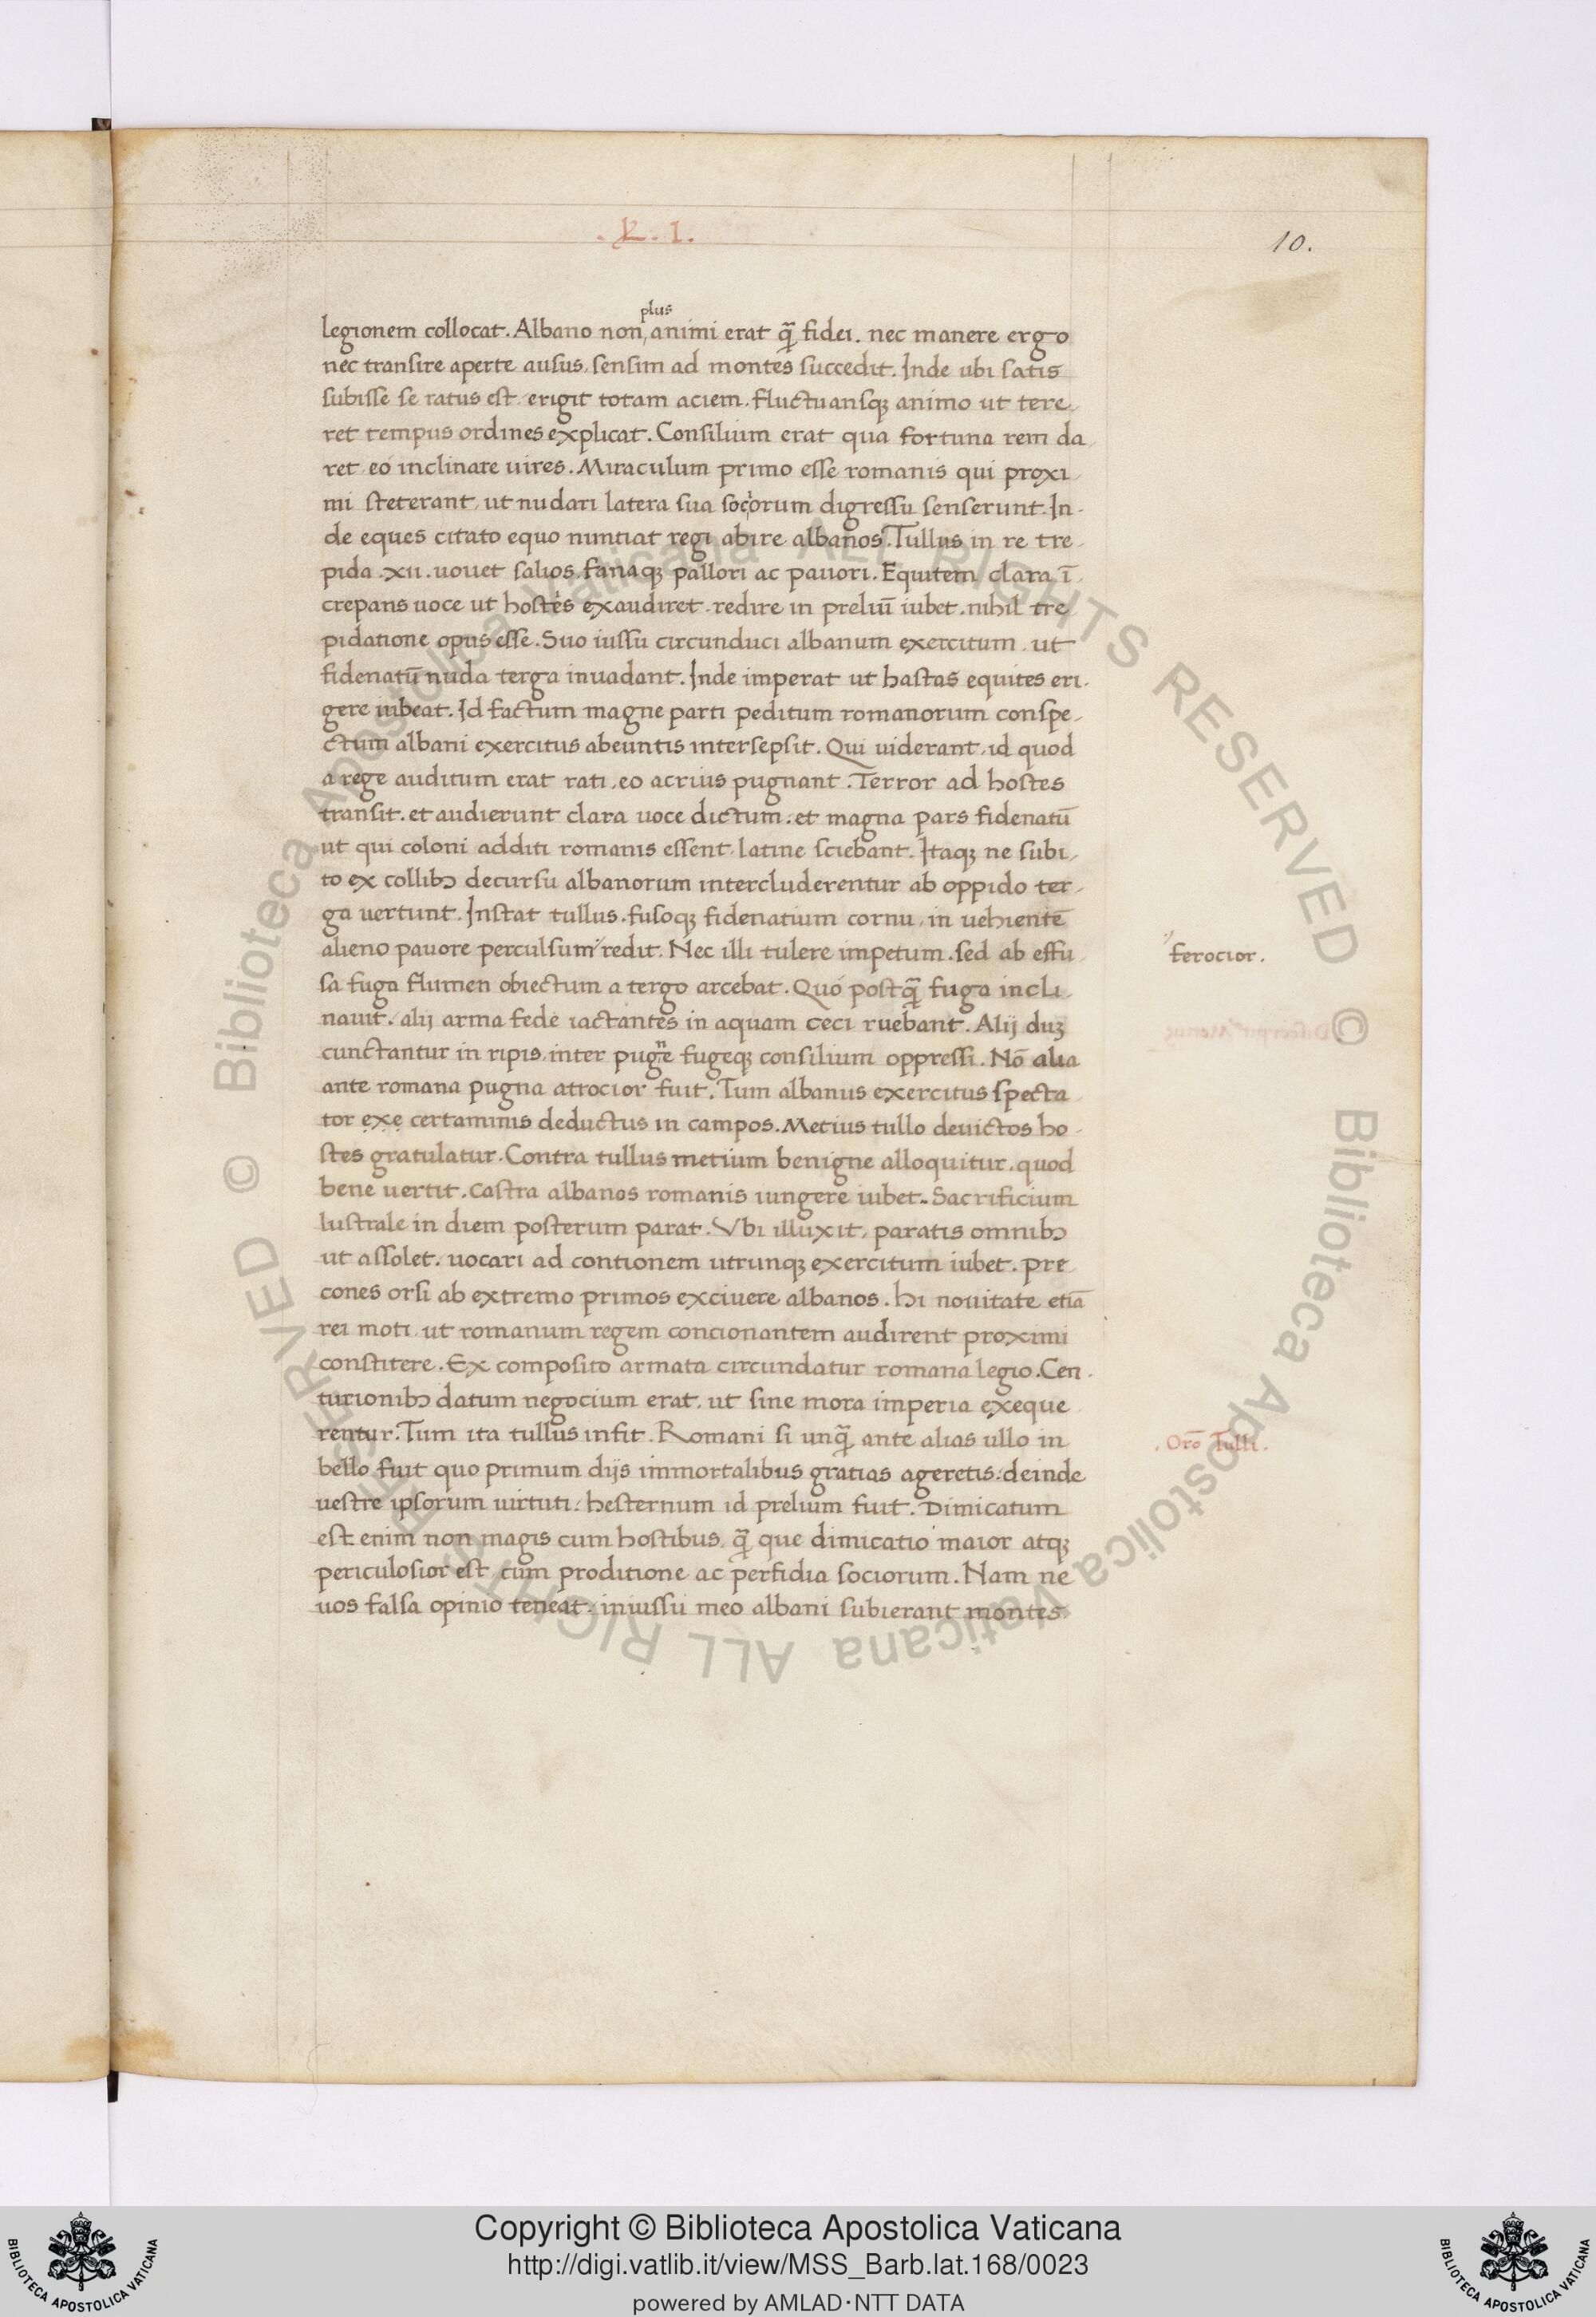 .L. I.
10.
plus
legionem collocat. Albano non animi erat q̃ fidei. nec manere ergo
nec transire aperte ausus, sensim ad montes succedit. Inde ubi satis
subisse se ratus est, erigit totam aciem. fluctuansq; animo ut tere,
ret tempus ordines explicat. Consilium erat qua fortuna rem da
ret eo inclinare uires. Miraculum primo esse romanis qui proxi
mi steterant, ut nudari latera sua sociorum digressu senserunt. In-
de eques citato equo nuntiat regi abire albanos. Tullus in re tre
pida .xii. uouet salios, fanaq; pallori ac pauori. Equitem clara ī
crepans uoce ut hostes exaudiret, redire in preliū iubet. nihil tre
pidatione opus esse. Suo iussu circunduci albanum exercitum, ut
fidenatū nuda terga inuadant. Inde imperat ut hastas equites eri.
gere iubeat. Id factum magne parti peditum romanorum conspe,
ctum albani exercitus abeuntis intersepsit. Qui uiderant, id quod
a rege auditum erat rati, eo acrius pugnant. Terror ad hostes
transit. et audierunt clara uoce dictum. et magna pars fidenatū
ut qui coloni additi romanis essent, latine sciebant. Itaq; ne subi,
to ex collibɔ decursu albanorum intercluderentur ab oppido ter,
ga uertunt. Instat tullus. fusoq; fidenatium cornu, in uehientē
alieno pauore perculsum redit. Nec illi tulere impetum. sed ab effu
ferocior.
sa fuga flumen obiectum a tergo arcebat. Quo postq̃ fuga incli,
nauit. alij arma fede iactantes in aquam ceci ruebant. Alij duʒ
cunctantur in ripis, inter pugne fugeq; consilium oppressi. Nō alia
ante romana pugna atrocior fuit. Tum albanus exercitus specta
tor exe certaminis deductus in campos. Metius tullo deuictos ho-
stes gratulatur. Contra tullus metium benigne alloquitur. quod
bene uertit. castra albanos romanis iungere iubet. Sacrificium
lustrale in diem posterum parat. Vbi illuxit, paratis omnibɔ
ut assolet. uocari ad contionem utrunq; exercitum iubet. pre
cones orsi ab extremo primos exciuere albanos. hi nouitate etiā
rei moti, ut romanum regem concionantem audirent proximi
constitere. Ex composito armata circundatur romana legio. Cen.
turionibɔ datum negocium erat, ut sine mora imperia exeque
rentur. Tum ita tullus infit. Romani si unq̃ ante alias ullo in
.Orō Tulli.
bello fuit quo primum dijs immortalibus gratias ageretis. deinde
uestre ipsorum uirtuti. hesternum id prelium fuit. Dimicatum
est enim non magis cum hostibus, q̃ que dimicatio maior atq;
periculosior est cum proditione ac perfidia sociorum. Nam ne
uos falsa opinio teneat. iniussu meo albani subierant montes.
© Biblioteca Apostolica Vaticana ALL RIGHTS RESERVED
© Biblioteca Apostolica Vaticana ALL RIGHTS RESERVED
Copyright © Biblioteca Apostolica Vaticana
http://digi.vatlib.it/view/MSS_Barb.lat.168/0023
powered by AMLAD·NTT DATA
BIBLIOTECA APOSTOLICA VATICANA
BIBLIOTECA APOSTOLICA VATICANA